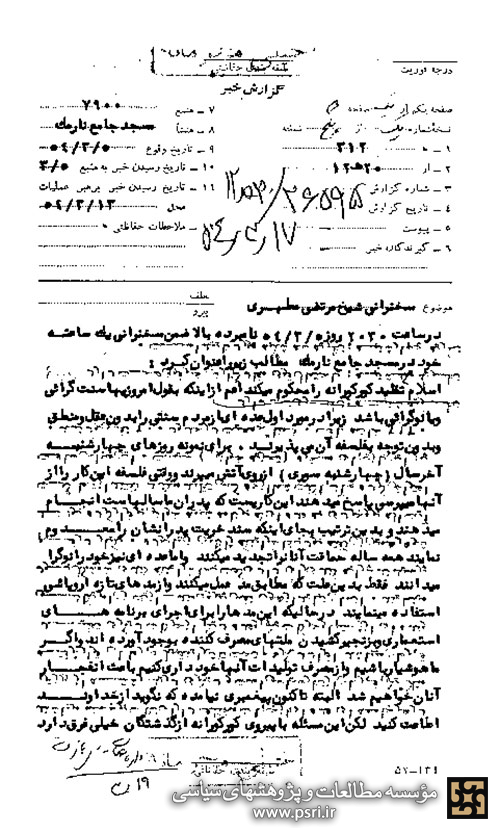 طبقه بندی حفاظتی
درجه فوریت
گزارش خبر
صفحه یکم از یک صفحه
نسخه شماره یک از پنج نسخه
۱ ــ به ۳۱۲
۲ ــ از ۲۰ ه ۱۲
۳ ــ شماره گزارش
۴ ــ تاریخ گزارش
۵ ــ پیوست
۶ ــ گیرندگان خبر
۷ ــ منبع ۷۹۰۰
۸ ــ منشأ مسجد جامع نارمک
۹ ــ تاریخ وقوع ۵۴/۳/۵
۱۰ ــ تاریخ رسیدن خبر به منبع ۳/۵
۱۱ ــ تاریخ رسیدن خبر برهبر عملیات
محل ۵۴/۳/۱۳
ملاحظات حفاظتی
موضوع سخنرانی شیخ مرتضی مطهری
عطف
پیرو
در ساعت ۲۰۳۰ روز ۵۴/۳/۵ نامبرده بالا ضمن سخنرانی یک ساعته
خود در مسجد جامع نارمک مطالب زیر را عنوان کرد :
اسلام تقلید کورکورانه را محکوم میکند اعم از اینکه بقول امروزیها سنت گرائی
و یا نوگرائی باشد زیرا در مورد اول عده ای از مردم سنتی را بدون عقل و منطق
و بدون توجه بفلسفه آن می پذیرند . برای نمونه روزهای چهارشنبه
آخر سال ( چهارشنبه سوری ) از روی آتش میپرند و وقتی فلسفه این کار را از
آنها میپرسی پاسخ میدهند این کاریست که پدران ما سالهاست انجام
میدهند و بدین ترتیب بجای اینکه سند خریت پدرانشان را معدوم
نمایند همه ساله حماقت آنانرا تجدید میکنند و یا عده ای نیز خود را نوگرا
میدانند فقط بدین علت که مطابق مد عمل میکنند و از مدهای تازه اروپائی
استفاده مینمایند در حالیکه این مدها را برای اجرای برنامه های
استعماری و بزنجیر کشیدن ملتهای مصرف کننده بوجود آورده اند و اگر
ما هوشیار باشیم و از مصرف تولیدات آنها خود داری کنیم باعث انفجار
آنان خواهیم شد البته تاکنون پیغمبری نیامده که نگوید از خداوند
اطاعت کنید لکن این مسئله با پیروی کورکورانه از گذشتگان خیلی فرق دارد
۵۲-۱۳۴
مؤسسه مطالعات و پژوهشهای سیاسی
www.psri.ir